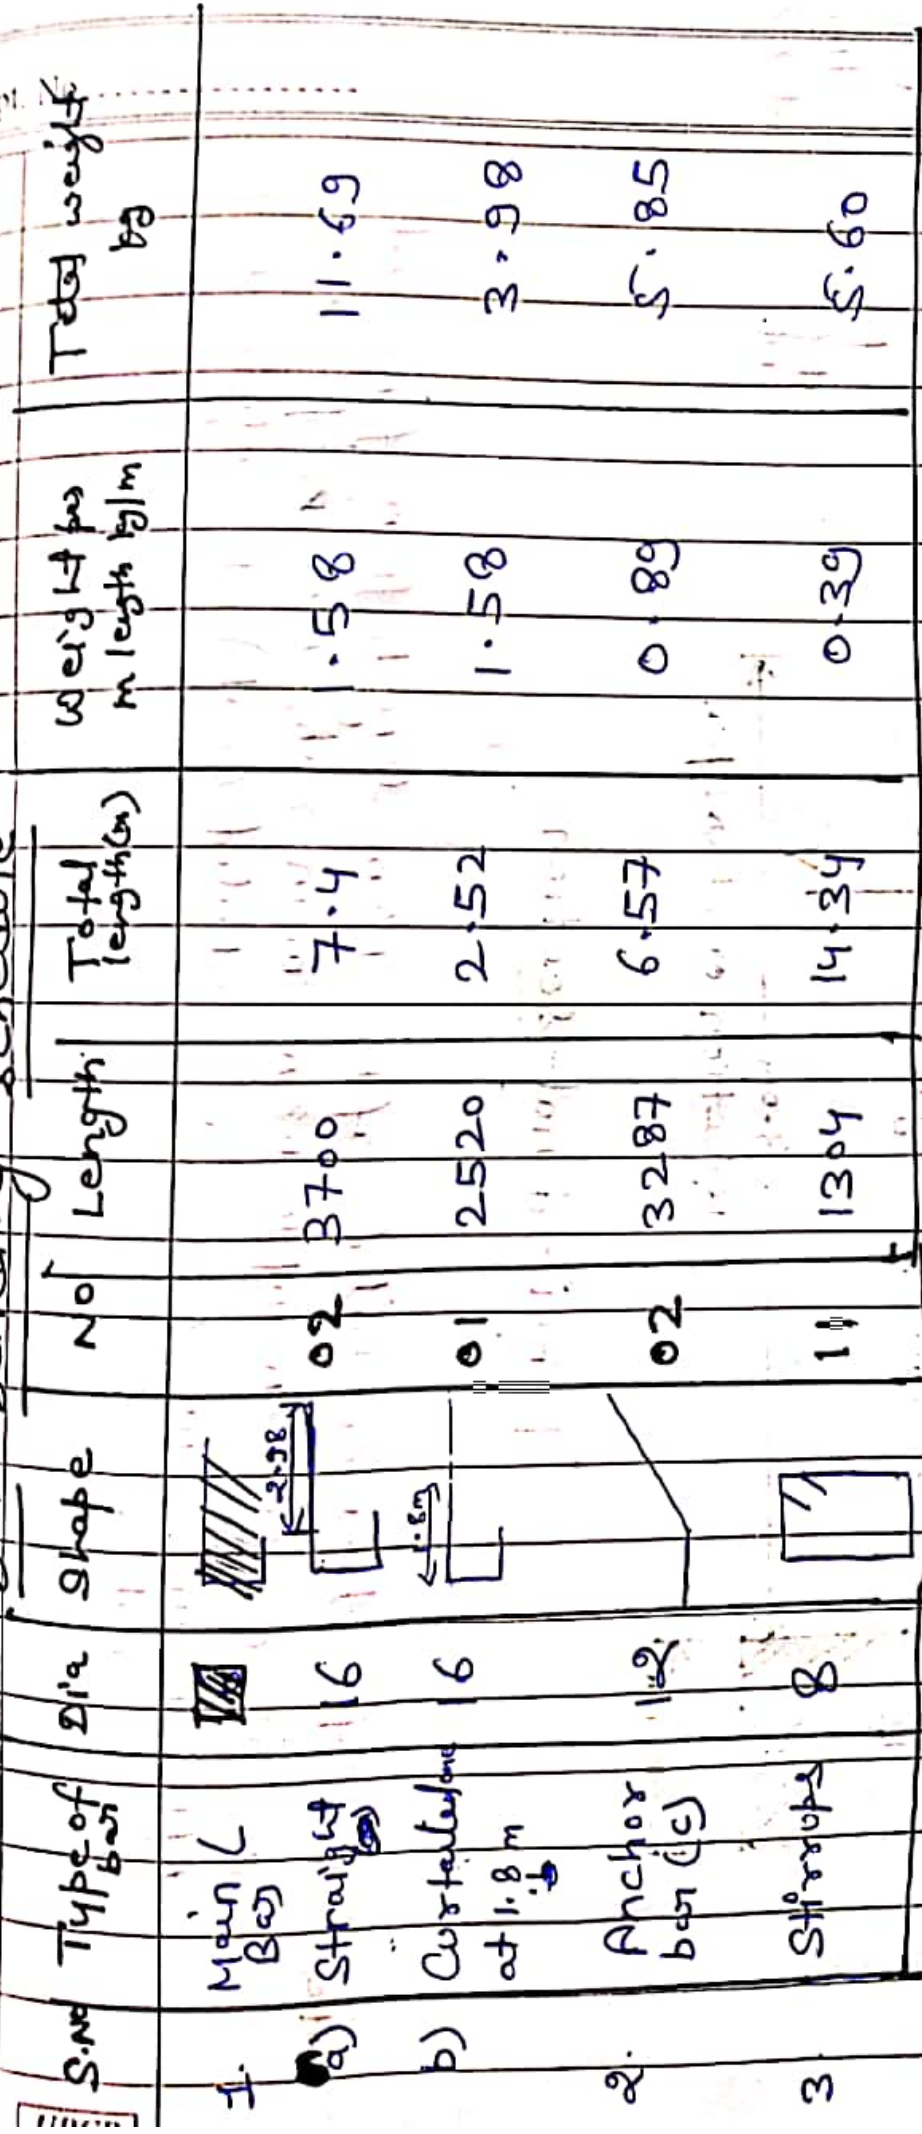 S.No Type of bar Dia Shape No Length Total length(m) Weight per m length kg/m Total weight kg
1. Main Bar
a) Straight 16 2.98 02 3700 7.4 1.58 11.69
b) Curtailed one at 1.8 m 16 1.8m 01 2520 2.52 1.58 3.98
2. Anchor bar (c) 12 02 3287 6.57 0.89 5.85
3 Stirrups 8 11 1304 14.34 0.39 5.60